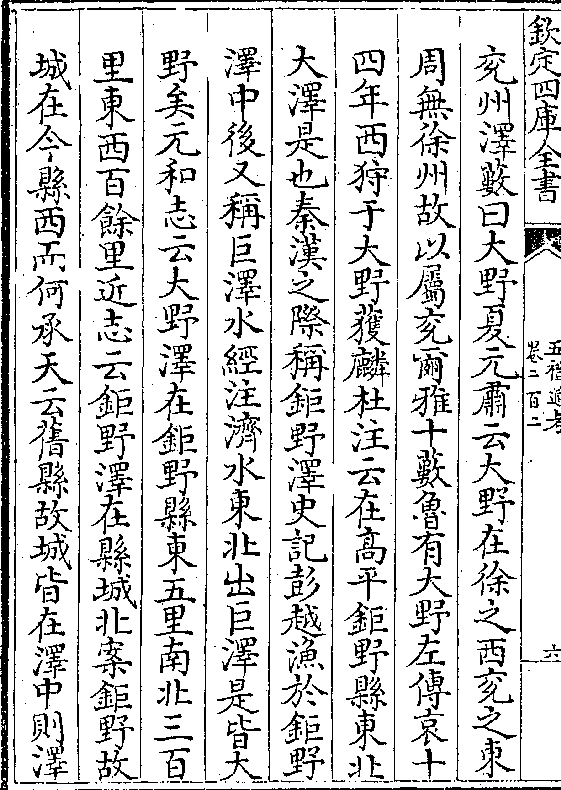 欽定四庫全書
五禮通考
卷二百二
六
兖州澤藪曰大野夏元肅云大野在徐之西兖之東
周無徐州故以屬兖爾雅十藪魯有大野左傳哀十
四年西狩于大野獲麟杜注云在高平鉅野縣東北
大澤是也秦漢之際稱鉅野澤史記彭越漁於鉅野
澤中後又稱巨澤水經注濟水東北出巨澤是皆大
野矣元和志云大野澤在鉅野縣東五里南北三百
里東西百餘里近志云鉅野澤在縣城北案鉅野故
城在今縣西而何承天云舊縣故城皆在澤中則澤